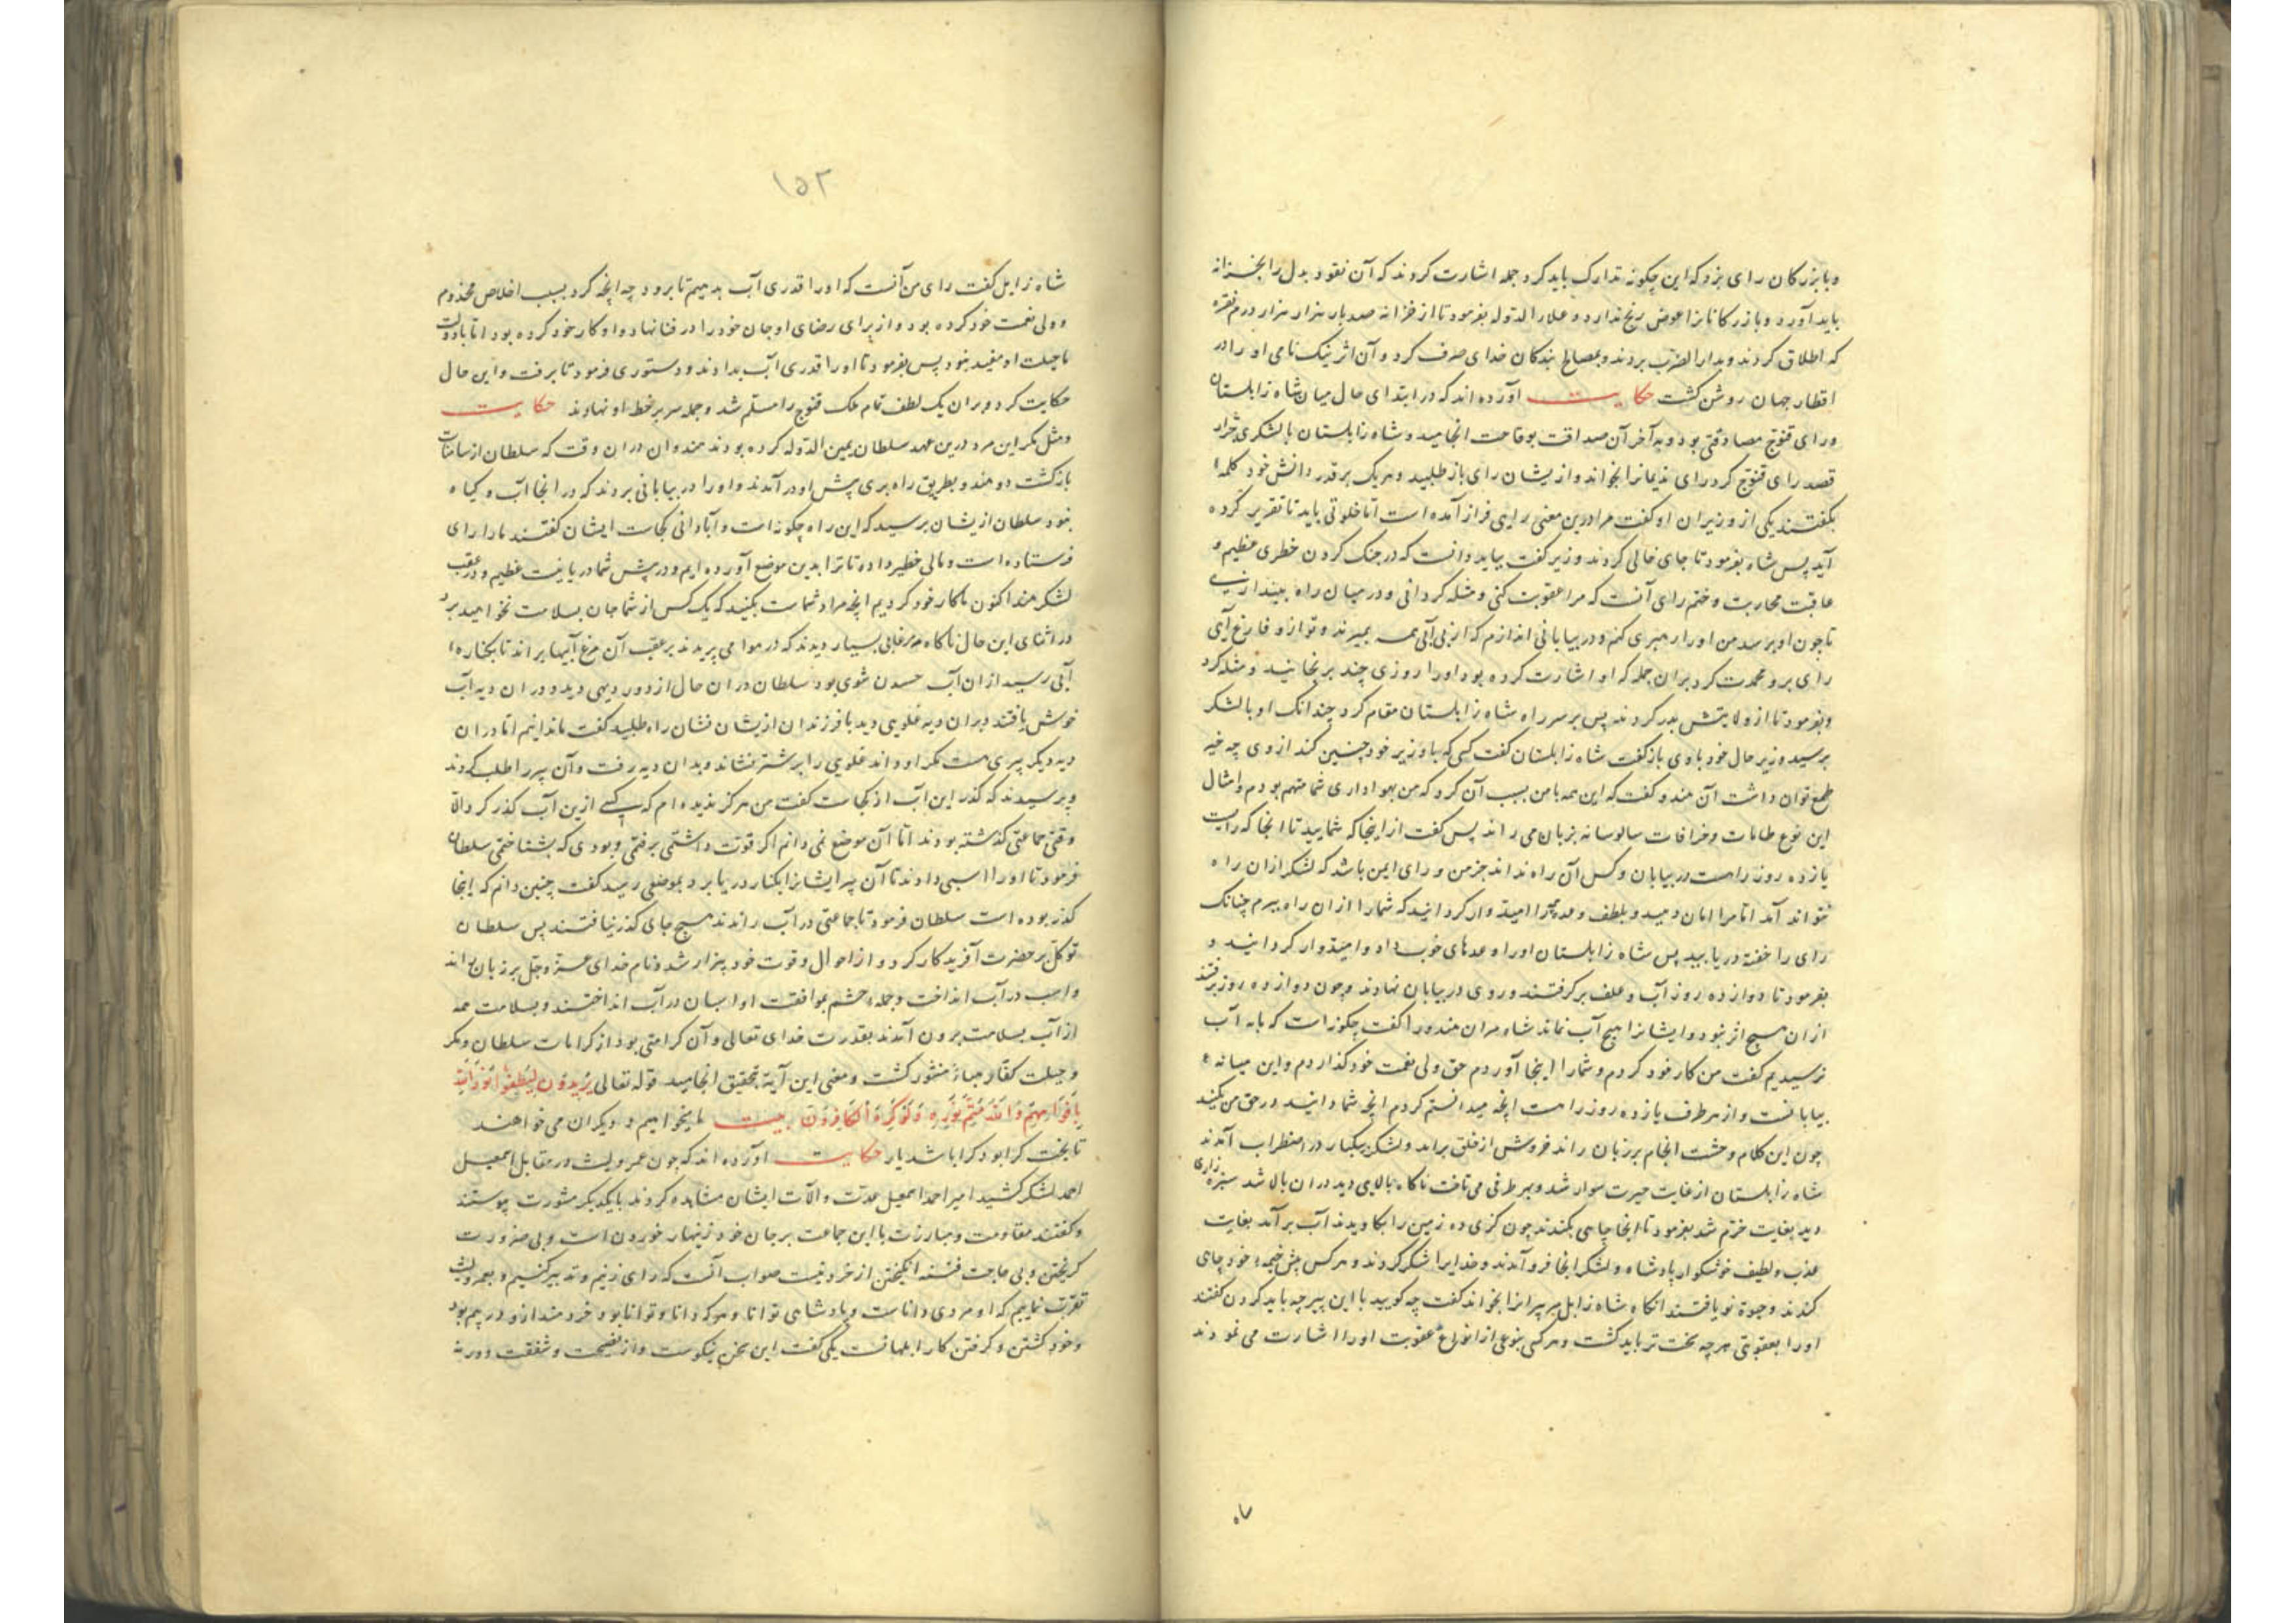 و با بزرکان رای بزد که این چکونه تدارک باید کرد جمله اشارت کردند که آن نقود بدل را بخزانه
باید آورد و بازرکانانرا عوض رنج ندارد و علاء الدوله بفرمود تا از خزانه صد بار هزار هزار درم نقره
که اطلاق کردند و بدار الضرب بردند و بمصالح بندکان خدای صرف کرد و آن اثر نیک نامی او را در
اقطار جهان روشن کشت حکایت آورده اند که در ابتدای حال میان شاه زابلستان
و رای قنوج مصادقتی بود و به آخر آن صداقت بوقاحت انجامید و شاه زابلستان با لشکری جرار
قصد رای قنوج کرد رای ندیمانرا بخواند و از یشان رای باز طلبید و هر یک بر قدر دانش خود کلمه
بکفتند یکی از وزیران او کفت مرا درین معنی رایی فراز آمده است اما خلوتی باید تا تقریر کرده
آید پس شاه بفرمود تا جای خالی کردند وزیر کفت بباید دانست که در جنک کردن خطری عظیم و
عاقبت محاربت وختم رای آنست که مرا عقوبت کنی و مثله کردانی و در میان راه بیندازی
تا چون او برسد من او را رهبری کنم و در بیابانی اندازم که از بی آبی همه بمیرند و تو ازو فارغ آیی
رای برو محمدت کرد بران جمله که او اشارت کرده بود او را روزی چند برنجانید و مثله کرد
و بفرمود تا از ولایتش بدر کردند پس بر سر راه شاه زابلستان مقام کرد چندانک او با لشکر
برسید وزیر حال خود با وی بازکفت شاه زابلستان کفت کسی که با وزیر خود چنین کند از وی چه خیر
طمع توان داشت آن هندو کفت که این همه با من بسبب آن کرد که من بهواداری شما متهم بودم و امثال
این نوع طامات و خرافات سالوسانه بر زبان می راند پس کفت از اینجا که شمایید تا انجا که رایست
یازده روز راهست در بیابان و کس آن راه نداند جز من و رای ایمن باشد که لشکر ازان راه
نتواند آمد اما مرا امان دهید و بلطف وعده مرا امیدوار کردانید که شما را ازان راه ببرم چنانک
رای را خفته دریابید پس شاه زابلستان او را وعدهای خوب داد و امیدوار کردانید و
بفرمود تا دوازده روز آب و علف برکرفتند و روی در بیابان نهادند و چون دوازده روز برفتند
ازان هیچ اثر نبود و ایشانرا هیچ آب نماند شاه مران هندو را کفت چکونه است که بآب
نرسیدیم کفت من کار خود کردم و شما را اینجا آوردم حق ولی نعمت خود کذاردم و این میانه
بیابانست و از هر طرف یازده روز راهست انچه میدانستم کردم انچه شما دانید در حق من بکنید
چون این کلام وحشت انجام بر زبان راند خروش از خلق برآمد و لشکر بیکبار در اضطراب آمدند
شاه زابلستان از غایت حیرت سوار شد و بهر طرفی می تافت ناکاه بالایی دید دران بالا شد سبزه زاری
دید بغایت خرم شد بفرمود تا انجا چاهی بکندند چون کزی ده زمین را بکاویدند آب برآمد بغایت
عذب و لطیف خوشکوار پادشاه و لشکر انجا فرو آمدند و خدایرا شکر کردند و هر کس پیش خیمه خود چاهی
کندند و حیوة نو یافتند انکاه شاه زابل مر پیرانرا بخواند کفت چه کویید با این پیر چه باید کردن کفتند
او را بعقوبتی هر چه سخت تر باید کشت و هر کسی بنوعی از انواع عقوبت او را اشارت می نمودند
۱۵۲
شاه زابل کفت رای من آنست که او را قدری آب بدهیم تا برود چه انچه کرد بسبب اخلاص مخدوم
و ولی نعمت خود کرده بود و از برای رضای او جان خود را در فنا نهاد و او کار خود کرده بود اما با دولت
ما حیلت او مفید نبود پس بفرمود تا او را قدری آب بدادند و دستوری فرمود تا برفت و این حال
حکایت کرد و بدان یک لطف تمام ملک قنوج را مسلم شد و جمله سر بر خط او نهادند حکایت
و مثل مکر این مرد درین عهد سلطان یمین الدوله کرده بودند هندوان دران وقت که سلطان از سامنات
بازکشت دو هندو بطریق راه بری پیش او درآمدند و او را در بیابانی بردند که در انجا آب و کیاه
نبود سلطان از یشان پرسید که این راه چکونه است و آبادانی کجاست ایشان کفتند ما را رای
فرستاده است و مالی خطیر داده تا ترا بدین موضع آورده ایم و در پیش شما دریاییست عظیم و در عقب
لشکر هند اکنون ما کار خود کردیم انچه مراد شماست بکنید که یک کس از شما جان بسلامت نخواهید برد
در اثنای این حال ناکاه مرغابی بسیار دیدند که در هوا می پریدند بر عقب آن مرغ آبیها براند تا بکناره
آبی رسید ازان آب حسدن شوی بود سلطان دران حال از دور دیهی دید و دران دیه آب
خوش یافتند دران دیه علویی دید با فرزندان از یشان نشان راه طلبید کفت ما ندانیم اما دران
دیه دیکر پیری هست مکر او داند علویی را بر شتر نشاند و بدان دیه رفت و آن پیر را طلب کردند
و پرسیدند که کذر این آب از کجاست کفت من هرکز ندیده ام که کسی ازین آب کذر کرد الا
وقتی جماعتی کذشته بودند اما آن موضع نمی دانم اکر قوت داشتمی برفتمی و بودی که بشناختمی سلطان
فرمود تا او را اسبی دادند تا آن پیر ایشانرا بکنار دریا برد بموضعی رسید کفت چنین دانم که اینجا
کذر بوده است سلطان فرمود تا جماعتی در آب راندند هیچ جای کذر نیافتند پس سلطان
توکل بر حضرت آفریدکار کرد و از احوال و قوت خود بیزار شد و نام خدای عز و جل بر زبان براند
و اسب در آب انداخت و جمله حشم بموافقت او اسبان در آب انداختند و بسلامت همه
از آب بسلامت برون آمدند بقدرت خدای تعالی و آن کرامتی بود از کرامات سلطان و مکر
و حیلت کفار هباءً منثور کشت و معنی این آیة بتحقیق انجامید قوله تعالی یُرِیدُونَ لِیُطْفِؤُا نُورَ اللهِ
بِاَفْوَاهِهِمْ وَاللهُ مُتِمُّ نُورِهِ وَلَوْ کَرِهَ الْکَافِرُونَ بیت ما میخواهیم و دیکران می خواهند
تا بخت کرا بود کرا باشد یار حکایت آورده اند که چون عمرو لیث در مقابل اسمعیل
احمد لشکر کشید امیر احمد اسمعیل عدت و آلات ایشان مشاهده کردند با یکدیکر مشورت پیوستند
و کفتند مقاومت و مبارزت با این جماعت بر جان خود زنهار خوردن است و بی ضرورت
کریختن و بی حاجت فتنه انکیختن از خرد نیست صواب آنست که رای زنیم و تدبیر کنیم و بعمرو لیث
تقرب نماییم که او مردی داناست و پادشاهی توانا و هر که دانا و توانا بود خردمند ازو در بیم بود
و خود کشتن و کرفتن کار ابلهانست یکی کفت این سخن نیکوست و از نصیحت و شفقت دور نه